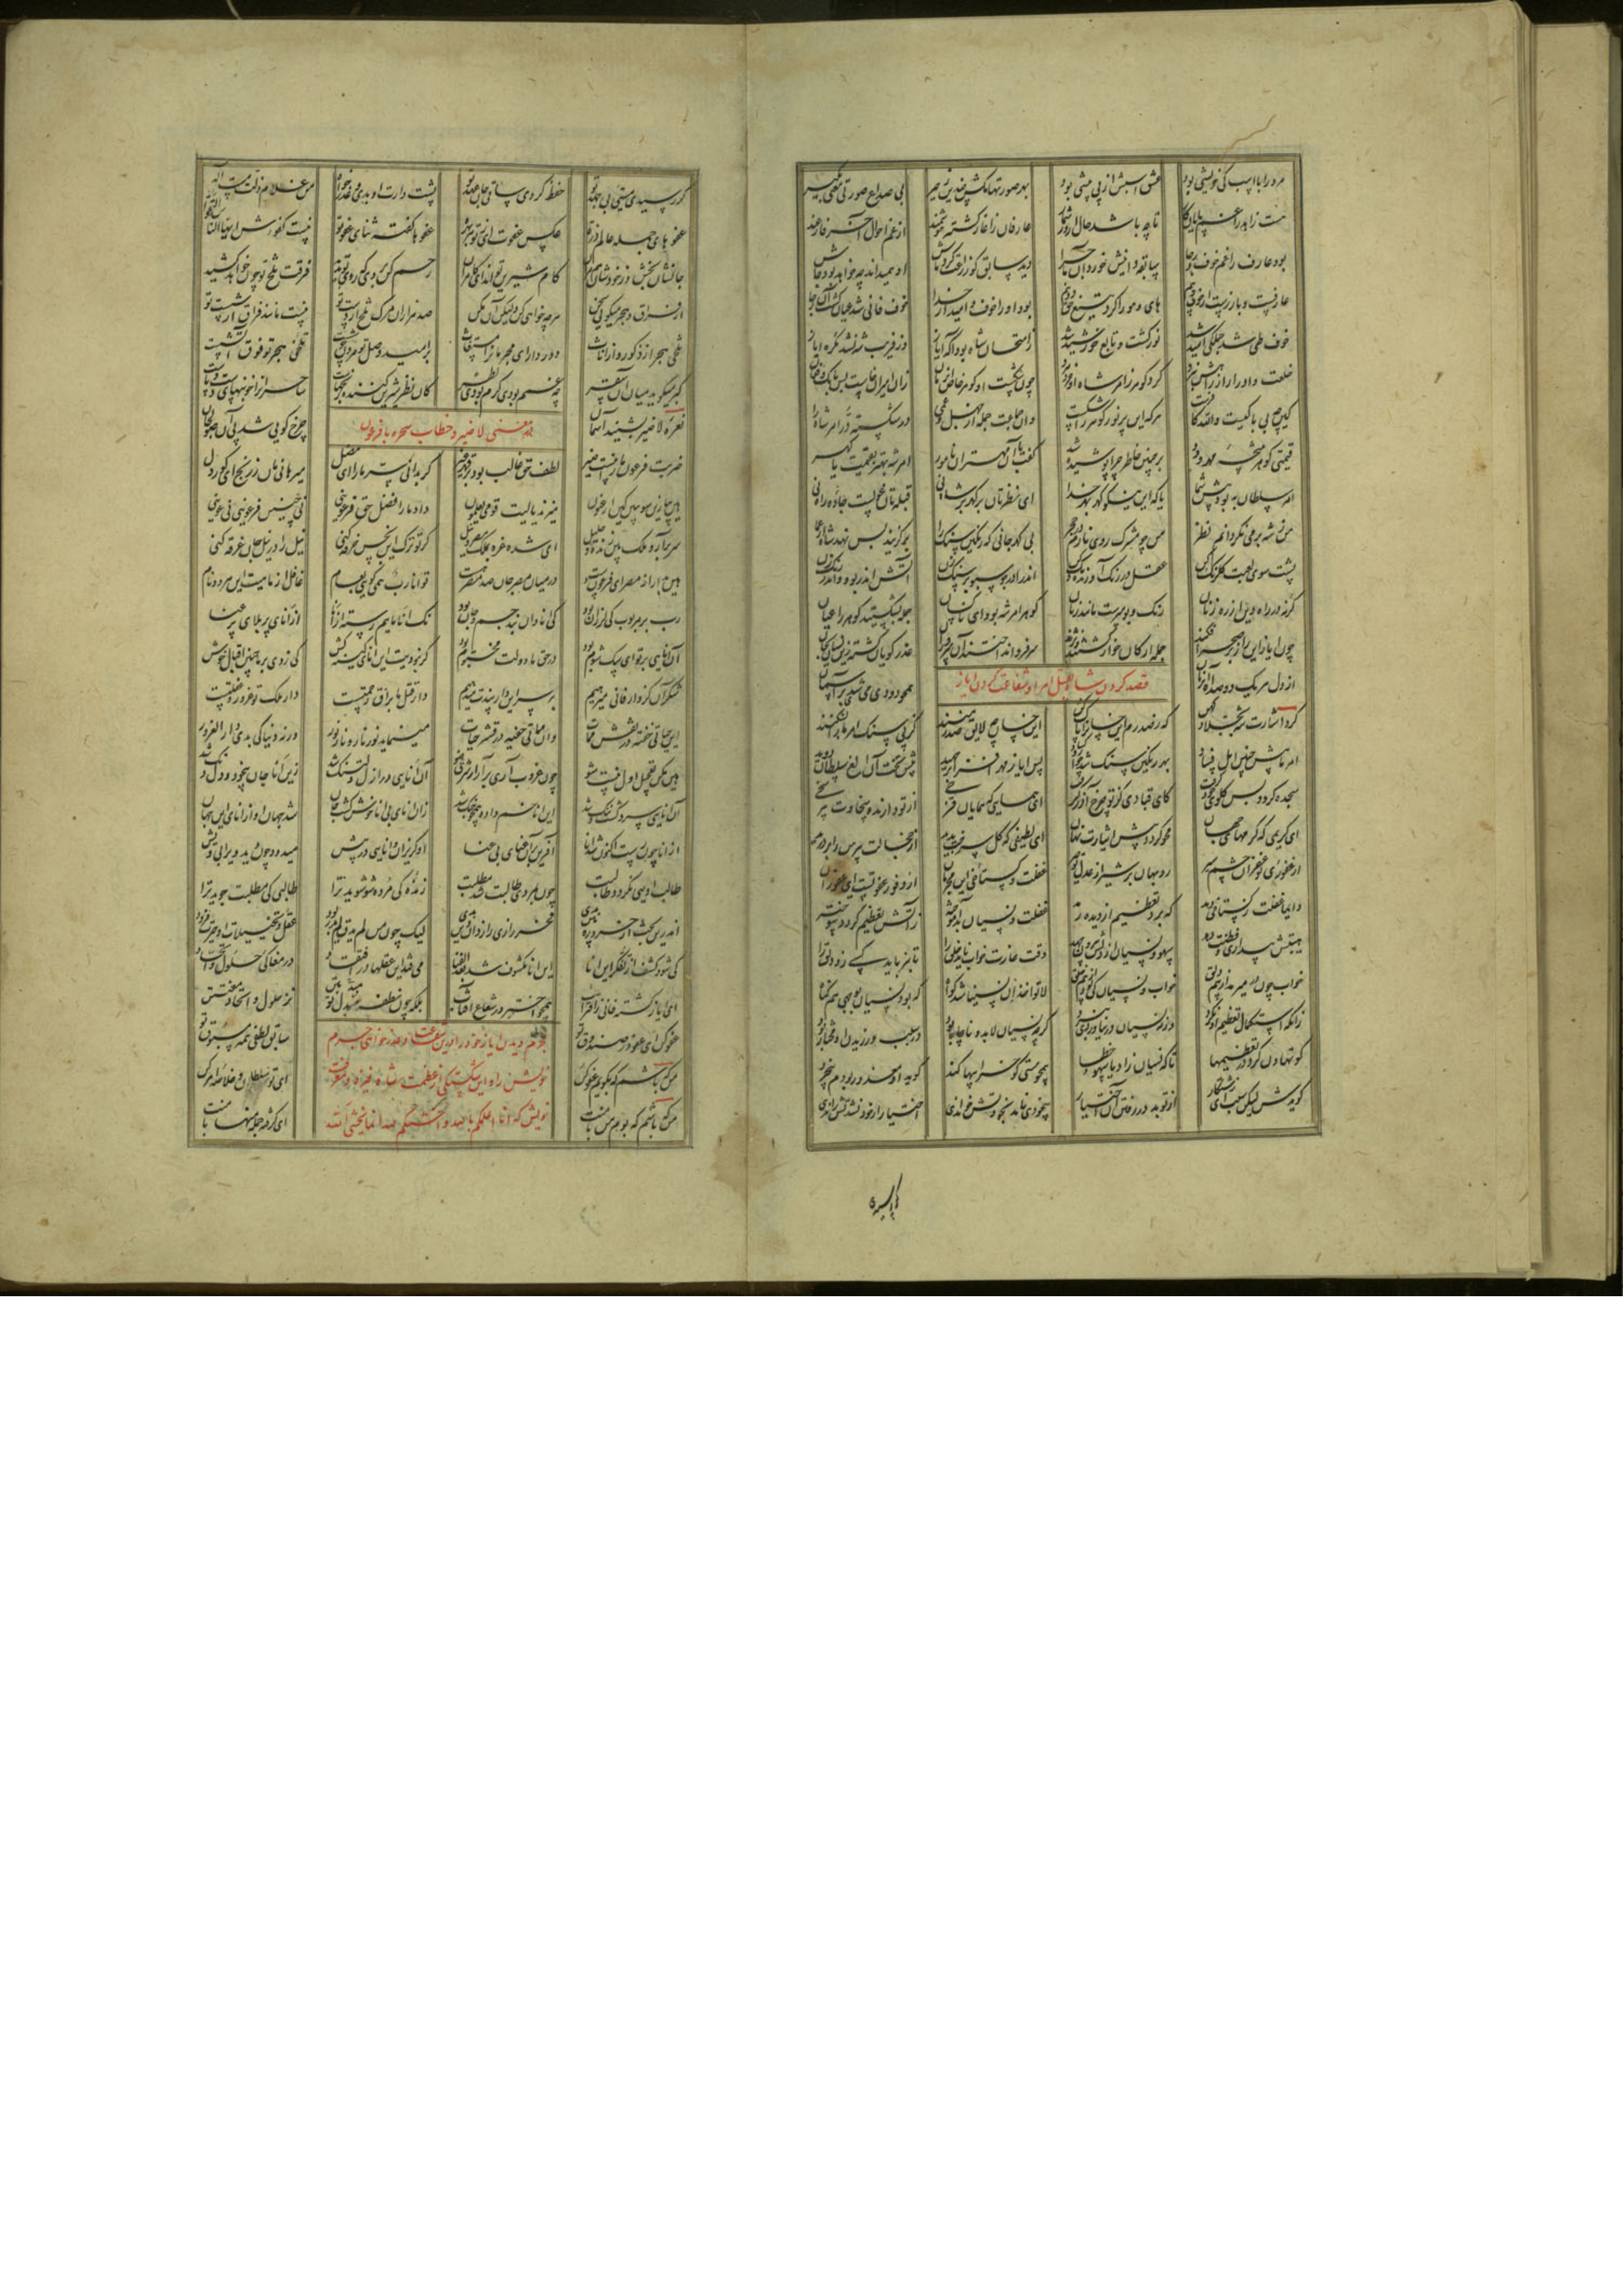 مرد را با اسب کی خویشی بود عشق اسبش از پی پیشی بود بهر صورتها مکش چندین زحیر بی صداع صورتی معنی بگیر
هست زاهد را غم پایان کار تا چه باشد حال او روز شمار عارفان ز آغاز گشته هوشمند از غم احوال آخر فارغند
بود عارف را غم خوف و رجا سابقه دانیش خورد آن هر دو را دید سابق کو زراعت کرد ماش او همیداند چه خواهد بود چاش
عارفست و باز رست از خوف و بیم های و هو را کرد تیغ حق دو نیم بود او را خوف و امید از خدا خوف فانی شد عیان گشت آن رجا
خوف طی شد جملگی امید شد نور گشت و تابع خورشید شد ز امتحان شاه بود آگه ایاز در فریب شه نشد گمره ایاز
خلعت و ادرار از راهش نبرد کرد گوهر ز امر شاه او خرد و مرد چون شکست او گوهر خاص آن زمان زان امیران خاست بس بانک و فغان
کین چه بی باکیست والله کافرست هرکه این پر نور گوهر را شکست وان جماعت جمله از جهل و عمی در شکسته در امر شاه را
قیمتی گوهر نتیجه مهر و ود بر چنین خاطر چرا پوشیده شد گفت ایاز ای مهتران نامور امر شه بهتر بقیمت یا گهر
امر سلطان به بود پیش شما یا که این نیکو گهر بهر خدا ای نظرتان بر گهر بر شاه نی قبله تان غولست جاده راه نی
من ز شه بر می نگردانم نظر من چو مشرک روی نارم در حجر بی گهر جانی که رنگین سنگ را برگزیند پس نهد شاه مرا
پشت سوی لعبت گلرنگ کن عقل در رنگ آورنده دنگ کن اندرا در جو سبو بر سنگ زن آتش اندر بو و اندر رنگ زن
گر نه در راه دین از ره زنان رنگ و بو مپرست مانند زنان گوهر امر شه بود ای ناکسان جمله بشکستید گوهر را عیان
چون ایاز این راز بر صحرا فکند جمله ارکان خوار گشتند و نژند سر فرو انداختند آن سروران عذر گویان گشته زین نسیان بجان
از دل هر یک دو صد آه آن زمان همچو دودی می شدی بر آسمان
قصد کردن شاه بقتل امرا و شفاعت کردن ایاز
کرد اشارت شه بجلاد کهن که ز صدرم این خسان را پاک کن این خسان چه لایق صدر منند کز پی سنگ امر ما را بشکنند
امر ما پیش چنین اهل فساد بهر رنگین سنگ شد خوار و کساد پس ایاز مهر افزا بر جهید پیش تخت آن الغ سلطان دوید
سجده کرد و پس گلوی خود گرفت کای قبادی کز تو چرخ آرد شگفت ای همایی که همایان فرخی از تو دارند و سخاوت هر سخی
ای کریمی که کرمهای جهان محو گردد پیش ایثارت نهان ای لطیفی که گل سرخت بدید از خجالت پیرهن را بر درید
از غفوری تو غفران چشم سیر روبهان بر شیر از عفو تو چیر غفلت و گستاخی این مجرمان از وفور عفو تست ای عفوران
دایما غفلت ز گستاخی دمد که برد تعظیم از دیده رمد غفلت و نسیان بد آموخته ز آتش تعظیم گردد سوخته
هیبتش بیداری و فطنت دهد سهو و نسیان از دلش بیرون جهد وقت غارت خواب ناید خلق را تا بنرباید کسی زو دلق را
خواب چون در میرمد از بیم دلق خواب و نسیان کی بود با بیم حلق لا تواخذ ان نسینا شد گواه که بود نسیان بوجهی هم گناه
زانکه استکمال تعظیم او نکرد ورنه نسیان در نیاوردی نبرد گرچه نسیان لابد و ناچار بود در سبب ورزیدن او مختار بود
کو تهاون کرد در تعظیمها تا که نسیان زاد یا سهو و خطا همچو مستی کو خرابیها کند گوید او معذور بودم من ز خود
گویدش لیکن سبب ای زشتکار از تو بد در رفتن آن اختیار بیخودی نامد بخود تش خواندی اختیار از خود نشد تش راندی
گر رسیدی
گر رسیدی مستیی بی جهد تو حفظ کردی ساقی جان عهد تو پشت دارت او بدی و عذر خواه من غلام زلت مست اله
عفوهای جمله عالم ذره عکس عفوت ای ز تو هر بهره عفوها گفته ثنای عفو تو نیست کفوش ایها الناس اتقوا
جانشان بخش و ز خودشان هم مران کام شیرین تو اند ای کامران رحم کن بر وی که روی تو بدید فرقت تلخ تو چون خواهد کشید
از فراق و هجر میگویی سخن هر چه خواهی کن ولیکن آن مکن صد هزاران مرگ تلخ از دست تو نیست مانند فراق شست تو
تلخی هجر از ذکور و از اناث دور دار ای مجرمان را مستغاث بر امید وصل تو مردن خوشست تلخی هجر تو فوق آتشست
گبر میگوید میان آن سقر چه غمم بودی گرم بودی نظر کان نظر شیرین کننده رنجهاست ساحران را خونبهای دست و پاست
تفسیر معنی لا ضیر و خطاب سحره با فرعون
نعره لا ضیر بشنید آسمان چرخ گویی شد پی آن صولجان
ضربت فرعون ما را نیست ضیر لطف حق غالب بود بر قهر غیر گر بدانی سر ما را ای مضل میرهانی مان ز رنج ای کوردل
هین بیا زین سو ببین کین ارغنون میزند یا لیت قومی یعلمون داد ما را فضل حق فرعونیی نی چنین فرعونیی بی عونیی
سر برآر و ملک بین زنده و جلیل ای شده غره بملک مصر و نیل گر تو ترک این نجس خرقه کنی نیل را در نیل جان غرقه کنی
هین بدار از مصر ای فرعون دست در میان مصر جان صد مصر هست تو انا رب همی گویی بعام غافل از ماهیت این هر دو نام
رب بر مربوب کی لرزان بود کی انادان بند جسم و جان بود نک انا ماییم رسته از انا از انای پر بلای پر عنا
آن انایی بر تو ای سگ شوم بود در حق ما دولت محتوم بود گر نبودیت این انای کینه کش کی زدی بر ما چنین اقبال خوش
شکر آن کز دار فانی میرهیم بر سر این دار پندت میدهیم دار قتل ما براق رحلتست دار ملک تو غرور و غفلتست
این حیاتی خفیه در نقش ممات وان مماتی خفیه در قشر حیات مینماید نور نار و نار نور ورنه دنیا کی بدی دار الغرور
هین مکن تعجیل اول نیست شو چون غروب آری برآ از شرق ضو آن انایی در ازل دلتنگ شد زین انا جان بیخود و دنگ شد
آن انایی سرد گشت و ننگ شد این انا خم داده و چنگ شد زان انای بی انا خوش گشت جان شد جهان او از انای این جهان
از انا چون رست اکنون شد انا آفرینها بر انای بی عنا او گریزان و انایی در پیش میدود چون دید ویرا بی ویش
طالب اویی نگردد طالبت چون بمردی طالبت شد مطلبت زنده کی مرده شو شوید ترا طالبی کی مطلبت جوید ترا
اندرین بحث ار خرد ره بین بدی فخر رازی رازدان دین بدی لیک چون من لم یذق لم یدر بود عقل و تخییلات او حیرت فزود
کی شود کشف از تفکر این انا این انا مکشوف شد بعد الفنا می فتد این عقلها در افتقاد در مغاکی حلول و اتحاد
ای ایاز گشته فانی ز اقتراب همچو اختر در شعاع آفتاب بلکه چون نطفه مبدل تو بتن نز حلول و اتحادی مفتتن
مجرم دیدن ایاز خود را درین شفاعت و عذر خواهی جرم
خویش و این شکستگی از عظمت شاه خیزد و معرفت
خویش که انا اعلمکم بالله و اخشیکم لله انما یخشی الله
عفو کن ای عفو در صندوق تو سابق لطفی همه مسبوق تو
من که باشم که بگویم عفو کن ای تو سلطان و خلاصه امر کن
من که باشم که بوم من با منت ای گرفته جمله منها دامنت